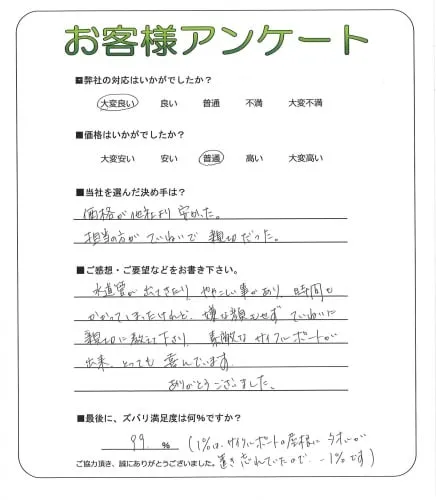 お客様アンケート
■弊社の対応はいかがでしたか？
大変良い 良い 普通 不満 大変不満
■価格はいかがでしたか？
大変安い 安い 普通 高い 大変高い
■当社を選んだ決め手は？
価格が他社より安かった。
担当の方がていねいで親切だった。
■ご感想・ご要望などをお書き下さい。
水道管が出てきたり、やっかいな事があり、時間も
かかってしまったけれど、嫌な顔もせず ていねいに
親切に教えて下さり、素敵な サイクルポートが
出来、とっても 喜んでいます
ありがとうございました。
■最後に、ズバリ満足度は何%ですか？
99 % (1%は、サイクルポートの屋根に が
ご協力頂き、誠にありがとうございました。 置き忘れていたので -1%です)